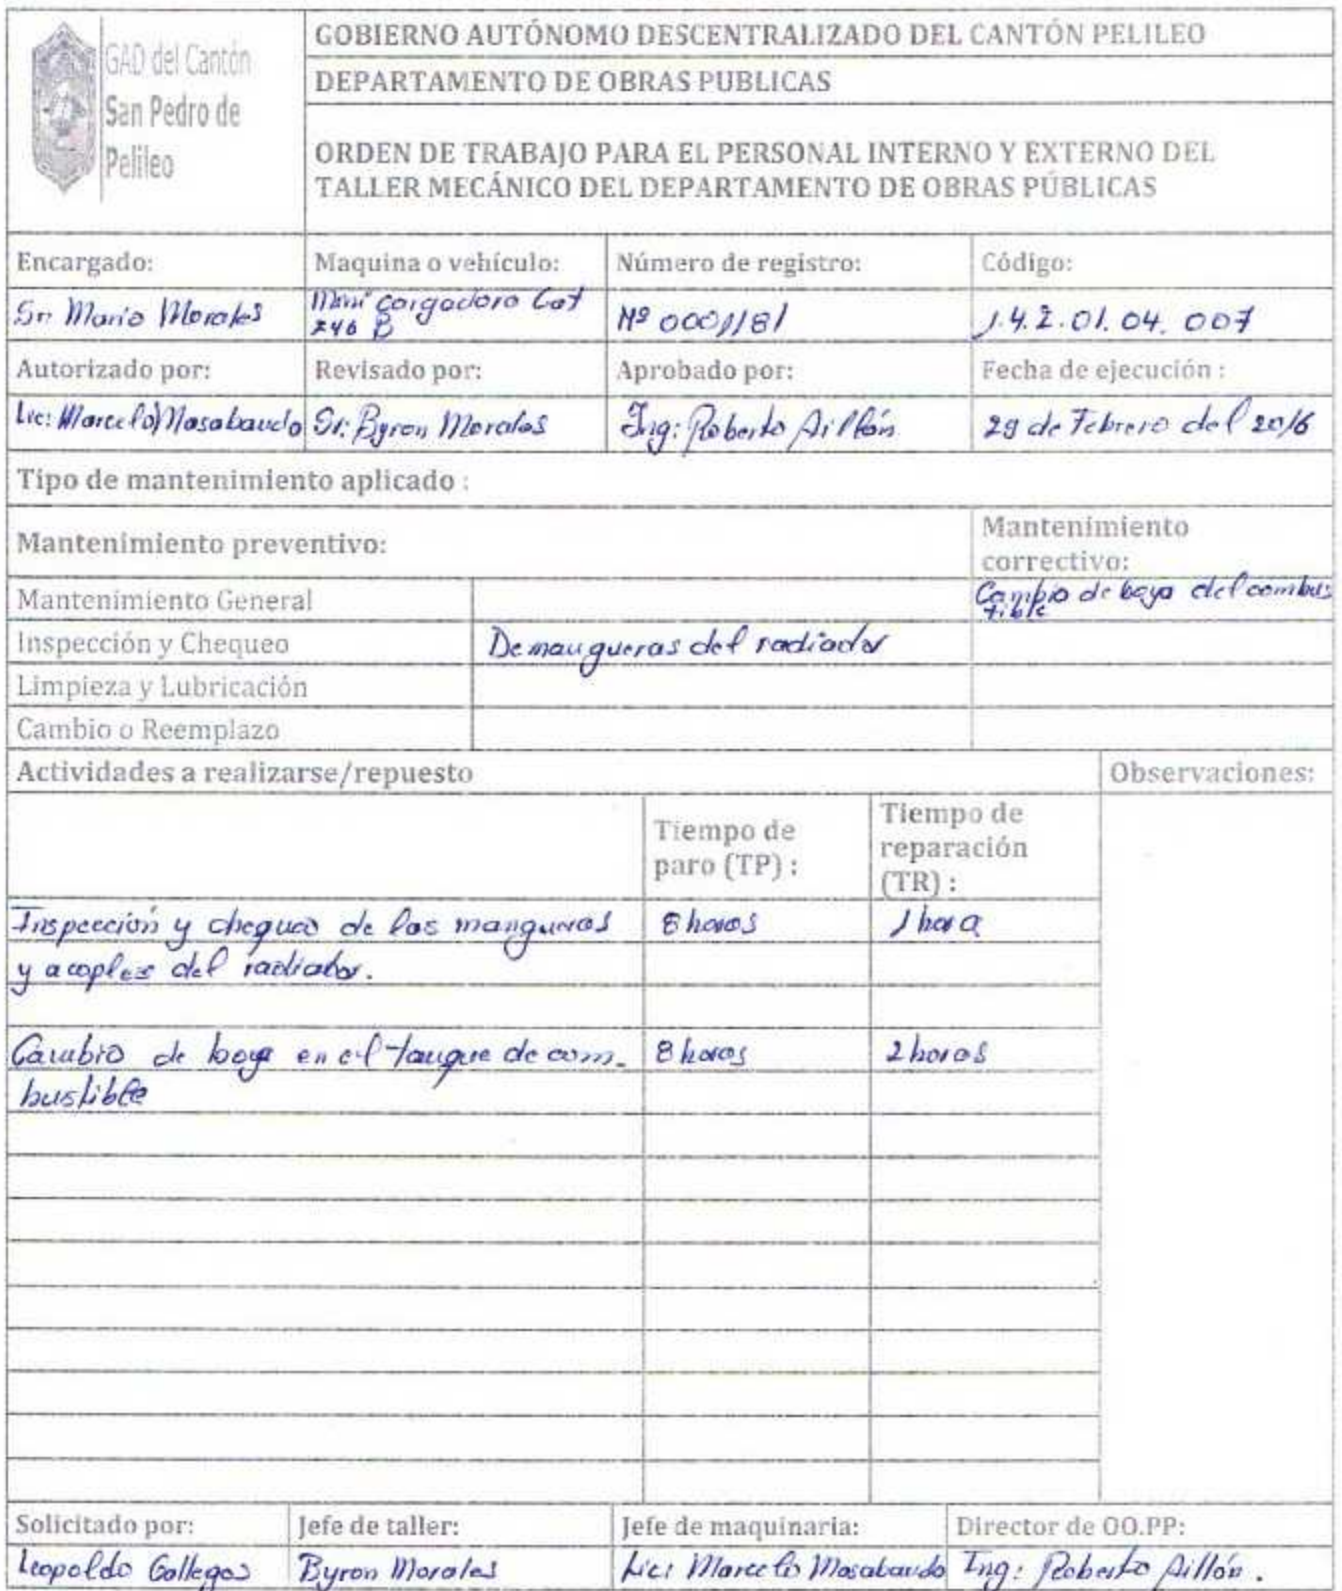 GAD del Cantón
San Pedro de
Pelileo
GOBIERNO AUTÓNOMO DESCENTRALIZADO DEL CANTÓN PELILEO
DEPARTAMENTO DE OBRAS PUBLICAS
ORDEN DE TRABAJO PARA EL PERSONAL INTERNO Y EXTERNO DEL
TALLER MECÁNICO DEL DEPARTAMENTO DE OBRAS PÚBLICAS
Encargado: Maquina o vehículo: Número de registro: Código:
Sr. Mario Morales Mini cargadora Cat 246 B Nº 0001181 1.4.2.01.04.007
Autorizado por: Revisado por: Aprobado por: Fecha de ejecución :
Lic: Marcelo Masabanda Sr: Byron Morales Ing: Roberto Aillón 29 de Febrero del 2016
Tipo de mantenimiento aplicado :
Mantenimiento preventivo: Mantenimiento
correctivo:
Mantenimiento General Cambio de boya del combus
tible
Inspección y Chequeo De mangueras del radiador
Limpieza y Lubricación
Cambio o Reemplazo
Actividades a realizarse/repuesto Observaciones:
Tiempo de
paro (TP) :
Tiempo de
reparación
(TR) :
Inspección y chequeo de las mangueras 8 horas 1 hora
y acoples del radiador.
Cambio de boya en el tanque de com- 8 horas 2 horas
bustible
Solicitado por: Jefe de taller: Jefe de maquinaria: Director de OO.PP:
Leopoldo Gallegos Byron Morales Lic: Marcelo Masabanda Ing: Roberto Aillón.